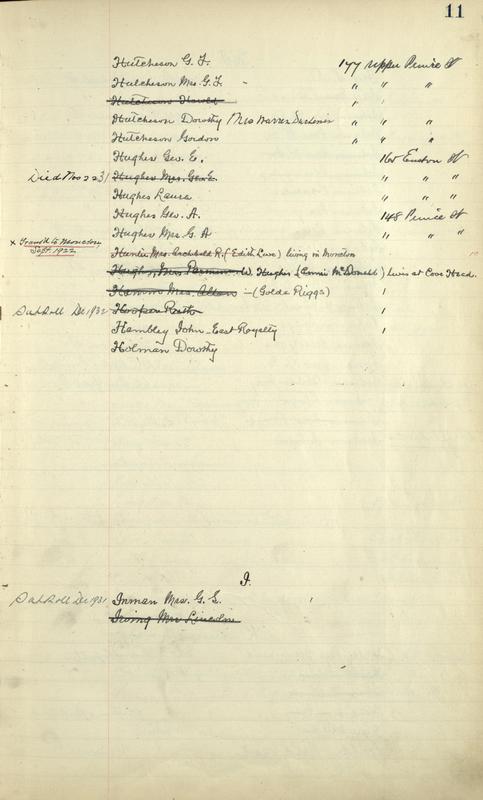 11
Hutcheson G. F. 177 Upper Prince St
Hutcheson Mrs. G. F. " " "
Hutcheson Harold " "
Hutcheson Dorothy / Mrs Warren Gardener " " "
Hutcheson Gordon " " "
Hughes Geo. E. 160 Euston St
Died Nov 22 31 Hughes Mrs. Geo. E. " " "
Hughes Laura " " "
Hughes Geo. A. 148 Prince St
Hughes Mrs. G. A. " " "
x Transf'd to Moncton
Sept. 1922
Hunter Mrs. Archibald R. (Edith Lowe) living in Moncton
Hugh, Mrs W. Hughes (Annie McDonald) lives at Cove Head.
Hamm Mrs. (Golda Riggs)
Dec 1932 Hooper
Hambley John - East Royalty
Holman Dorothy
I.
Dec 1931 Inman Mrs. G. S.
Irving Mrs Lincoln